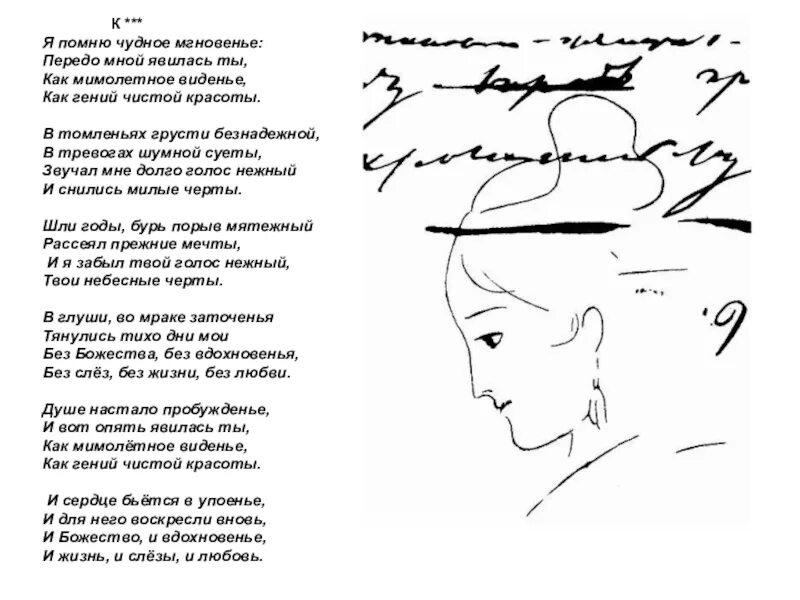 К ***
Я помню чудное мгновенье:
Передо мной явилась ты,
Как мимолетное виденье,
Как гений чистой красоты.

В томленьях грусти безнадежной,
В тревогах шумной суеты,
Звучал мне долго голос нежный
И снились милые черты.

Шли годы, бурь порыв мятежный
Рассеял прежние мечты,
И я забыл твой голос нежный,
Твои небесные черты.

В глуши, во мраке заточенья
Тянулись тихо дни мои
Без Божества, без вдохновенья,
Без слёз, без жизни, без любви.

Душе настало пробужденье,
И вот опять явилась ты,
Как мимолётное виденье,
Как гений чистой красоты.

И сердце бьётся в упоенье,
И для него воскресли вновь,
И Божество, и вдохновенье,
И жизнь, и слёзы, и любовь.